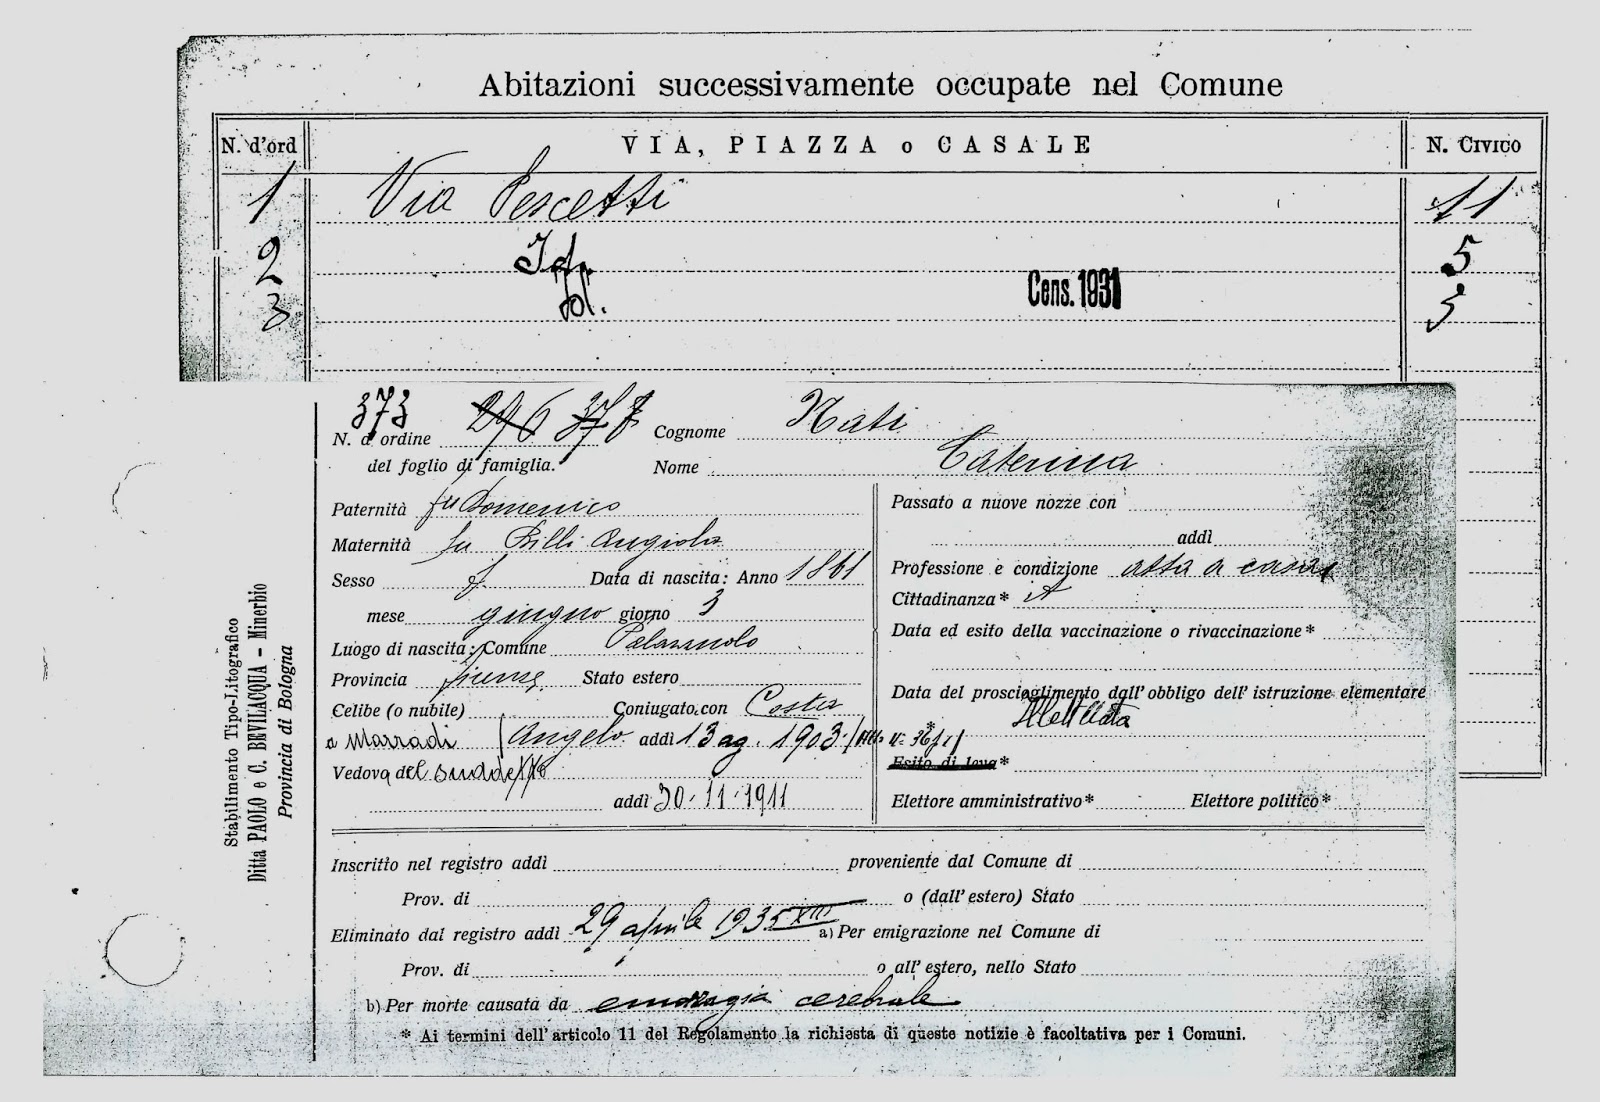 Abitazioni successivamente occupate nel Comune
N. d'ord VIA, PIAZZA o CASALE N. CIVICO
1 Via Pescetti 11
2 Id. 5
3 Id. 5
Cens. 1931
373 296 377
N. d'ordine
del foglio di famiglia.
Cognome Nati
Nome Caterina
Paternità fu Domenico
Maternità fu Billi Angiola
Sesso f. Data di nascita: Anno 1861
mese giugno giorno 3
Luogo di nascita: Comune Palazzuolo
Provincia Firenze Stato estero
Celibe (o nubile) Coniugato con Costa
a Marradi Angelo addì 13 ag. 1903
Vedova del suddetto
addì 30-11-1911
Passato a nuove nozze con
addì
Professione e condizione atta a casa
Cittadinanza*
Data ed esito della vaccinazione o rivaccinazione*
Data del proscioglimento dall'obbligo dell'istruzione elementare
*
Esito di leva*
Elettore amministrativo* Elettore politico*
Inscritto nel registro addì proveniente dal Comune di
Prov. di o (dall'estero) Stato
Eliminato dal registro addì 29 aprile 1935 XIII a) Per emigrazione nel Comune di
Prov. di o all'estero, nello Stato
b) Per morte causata da emorragia cerebrale
* Ai termini dell'articolo 11 del Regolamento la richiesta di queste notizie è facoltativa per i Comuni.
Stabilimento Tipo-Litografico
Ditta PAOLO e C. BEVILACQUA - Minerbio
Provincia di Bologna